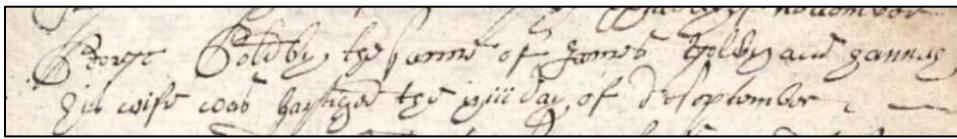 nouember
George Goldby, the sonne of James Golby and Hannah
his wife was baptized the xiii day of September